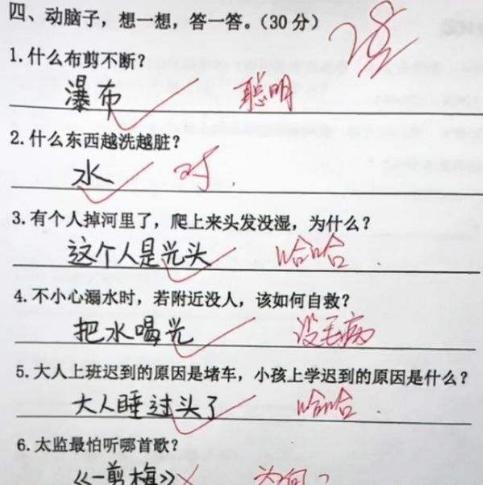 四、动脑子，想一想，答一答。（30分） 28
1.什么布剪不断？
瀑布 聪明
2.什么东西越洗越脏？
水 对.
3.有个人掉河里了，爬上来头发没湿，为什么？
这个人是光头 哈哈.
4.不小心溺水时，若附近没人，该如何自救？
把水喝光 没毛病
5.大人上班迟到的原因是堵车，小孩上学迟到的原因是什么？
大人睡过头了 哈哈.
6.太监最怕听哪首歌？
《一剪梅》 为何？